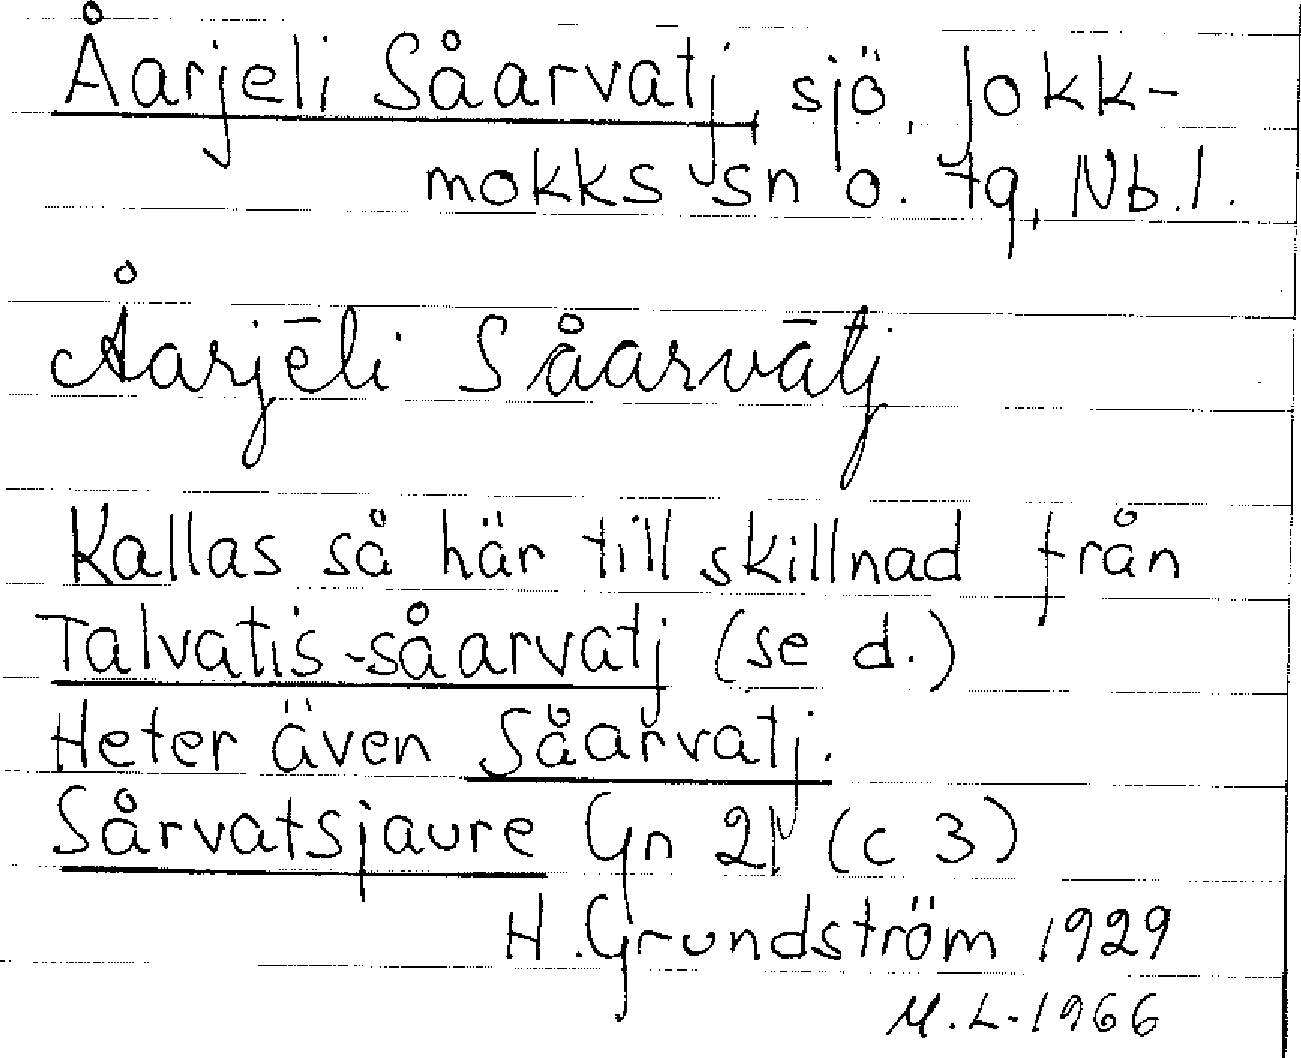 Åarjeli Såarvatj, sjö, Jokk-
mokks sn o. tg, Nb.l.
Åarjēli Såarvātj
Kallas så här till skillnad från
Talvatis-såarvatj (se d.)
Heter även Såarvatj.
Sårvatsjaure Gn 21 (c 3)
H. Grundström 1929
M.L. 1966